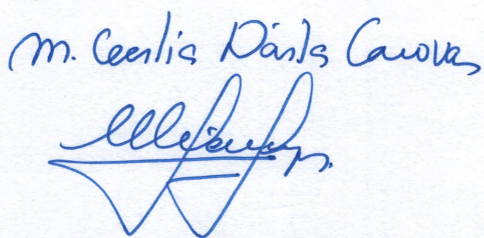 M. Cecilia Dávila Canovas